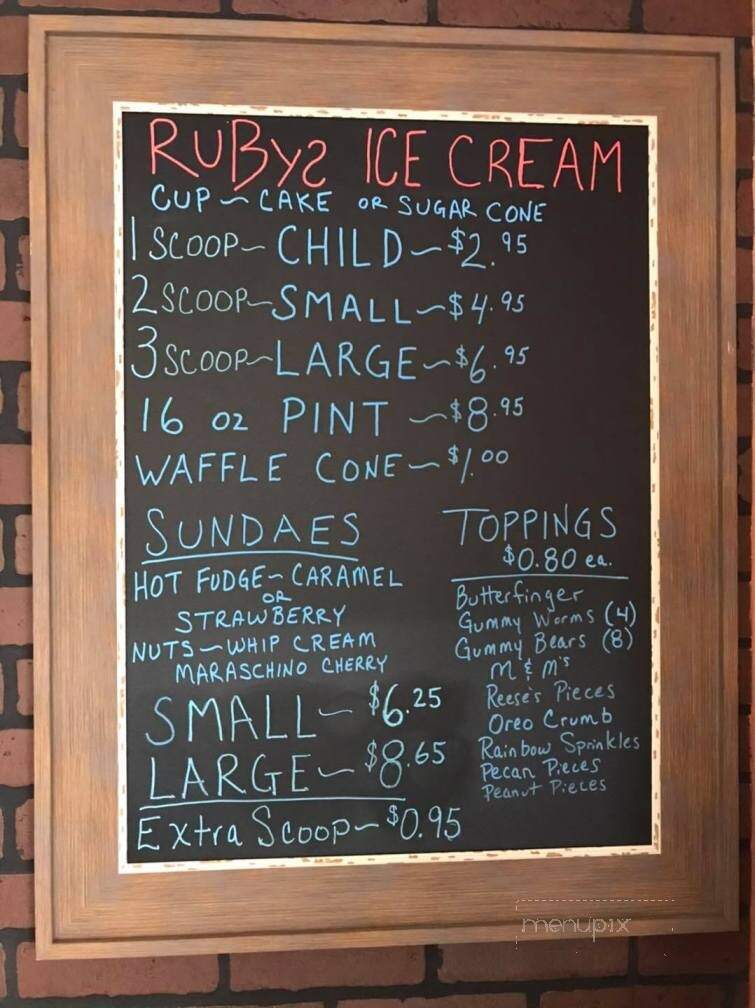 RUBYS ICE CREAM
CUP ~ CAKE OR SUGAR CONE
1 SCOOP ~ CHILD ~ $2.95
2 SCOOP ~ SMALL ~ $4.95
3 SCOOP ~ LARGE ~ $6.95
16 oz PINT ~ $8.95
WAFFLE CONE ~ $1.00
SUNDAES
HOT FUDGE ~ CARAMEL
OR
STRAWBERRY
NUTS ~ WHIP CREAM
MARASCHINO CHERRY
SMALL ~ $6.25
LARGE ~ $8.65
Extra Scoop ~ $0.95
TOPPINGS
$0.80 ea.
Butterfinger
Gummy Worms (4)
Gummy Bears (8)
M & M's
Reese's Pieces
Oreo Crumb
Rainbow Sprinkles
Pecan Pieces
Peanut Pieces
menupix